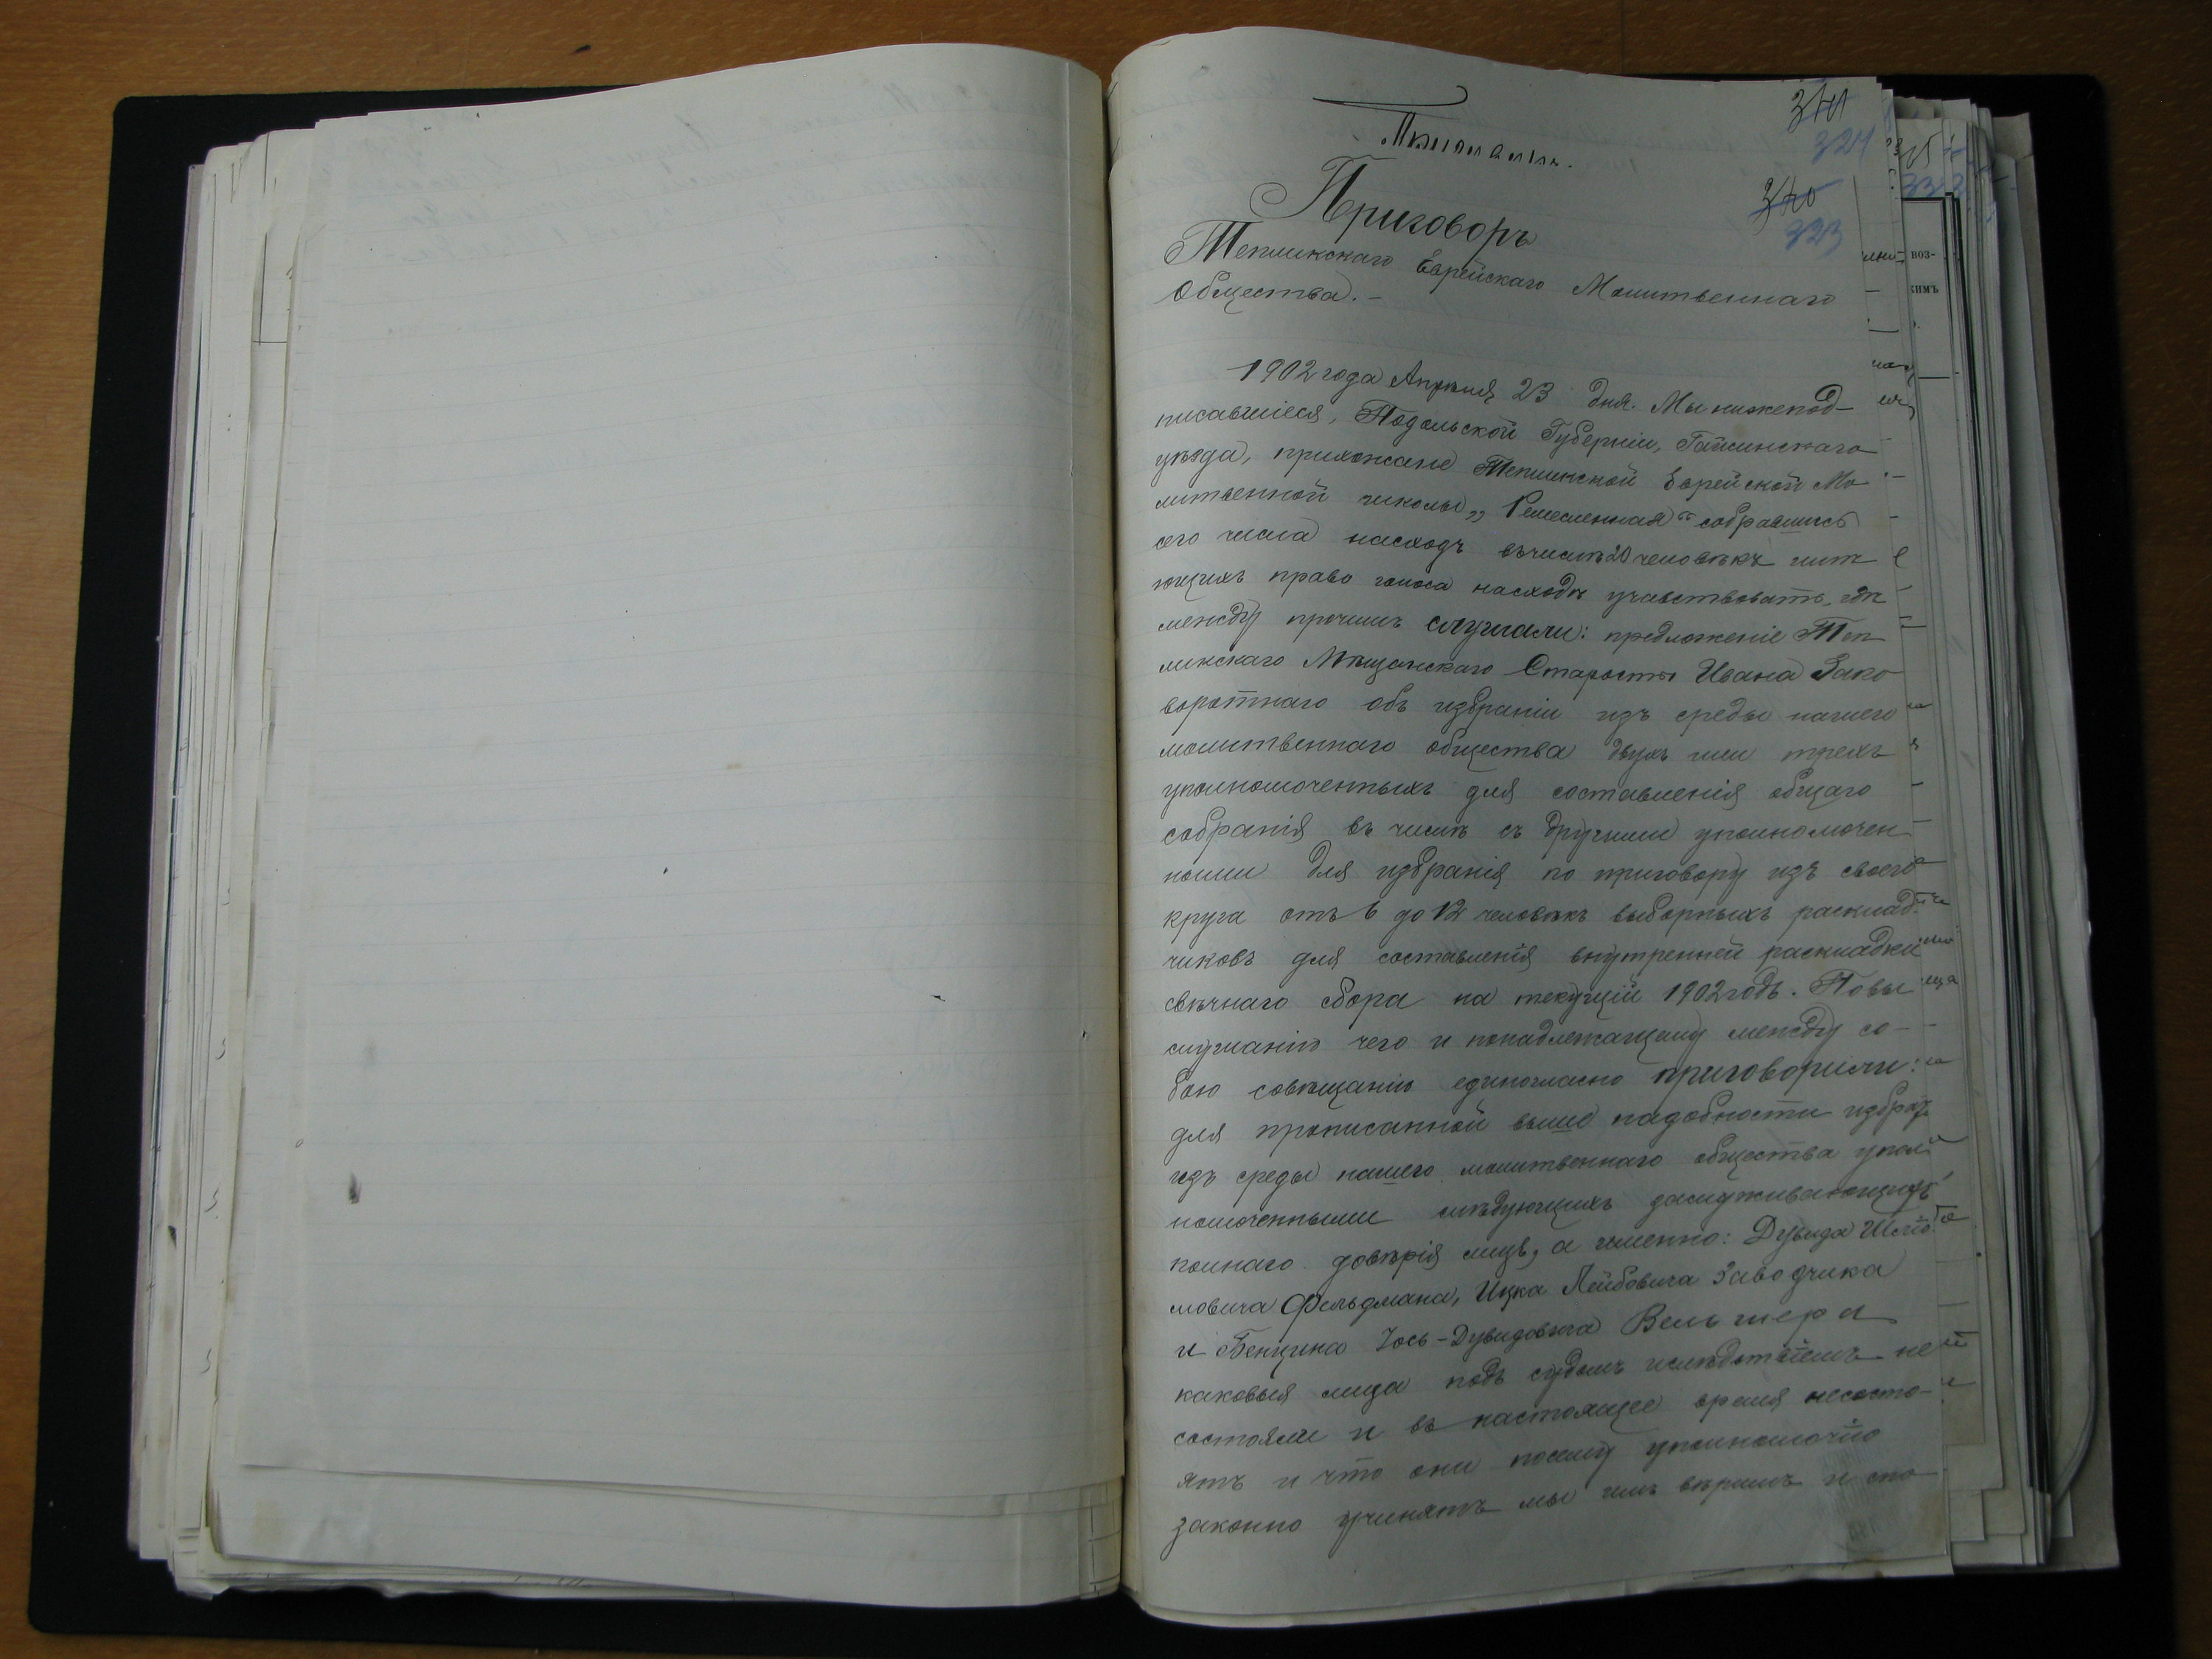 341
324
Приговоръ
340
323
Тепликскаго Еврейскаго Молитвеннаго
Общества. –
1902 года Апрѣля 23 дня. Мы нижепод-
писавшіеся, Подольской Губерніи, Гайсинскаго
уѣзда, прихожане Тепликской Еврейской Мо-
литвенной школы „Ремесленная“ собравшись
сего числа насходъ въчислѣ 20 человѣкъ имѣ
ющихъ право голоса насходѣ учавствовать, гдѣ
между прочимъ слушали: предложеніе Теп
ликскаго Мѣщанскаго Старосты Ивана Зако
воротнаго объ избраніи изъ среды нашего
молитвеннаго общества двухъ или трехъ
уполномоченныхъ для составленія общаго
собранія въ числѣ съ другими уполномочен
ными для избранія по приговору изъ своего
круга отъ 6 до 12 человѣкъ выборныхъ расклад-
чиковъ для составленія внутренней раскладки
свѣчнаго сбора на текущій 1902 годъ. Повы
слушаніи чего и понадлежащему между со-
бою совѣщанію единогласно приговорили:
для прописанной выше надобности избрать
изъ среды нашего молитвеннаго общества упол
номоченными слѣдующихъ заслуживающихъ
полнаго довѣрія лицъ, а именно: Дувида Шліо
мовича Фельдмана, Ицка Лейбовича Заводчика
и Бенциноа Іось-Дувидовича Вельшера
каковыя лица подъ судомъ ислѣдствіемъ не
состояли и въ настоящее время несосто-
ятъ и что они посему уполномочію
законно учинятъ мы имъ вѣримъ и спо
воз-
кимъ